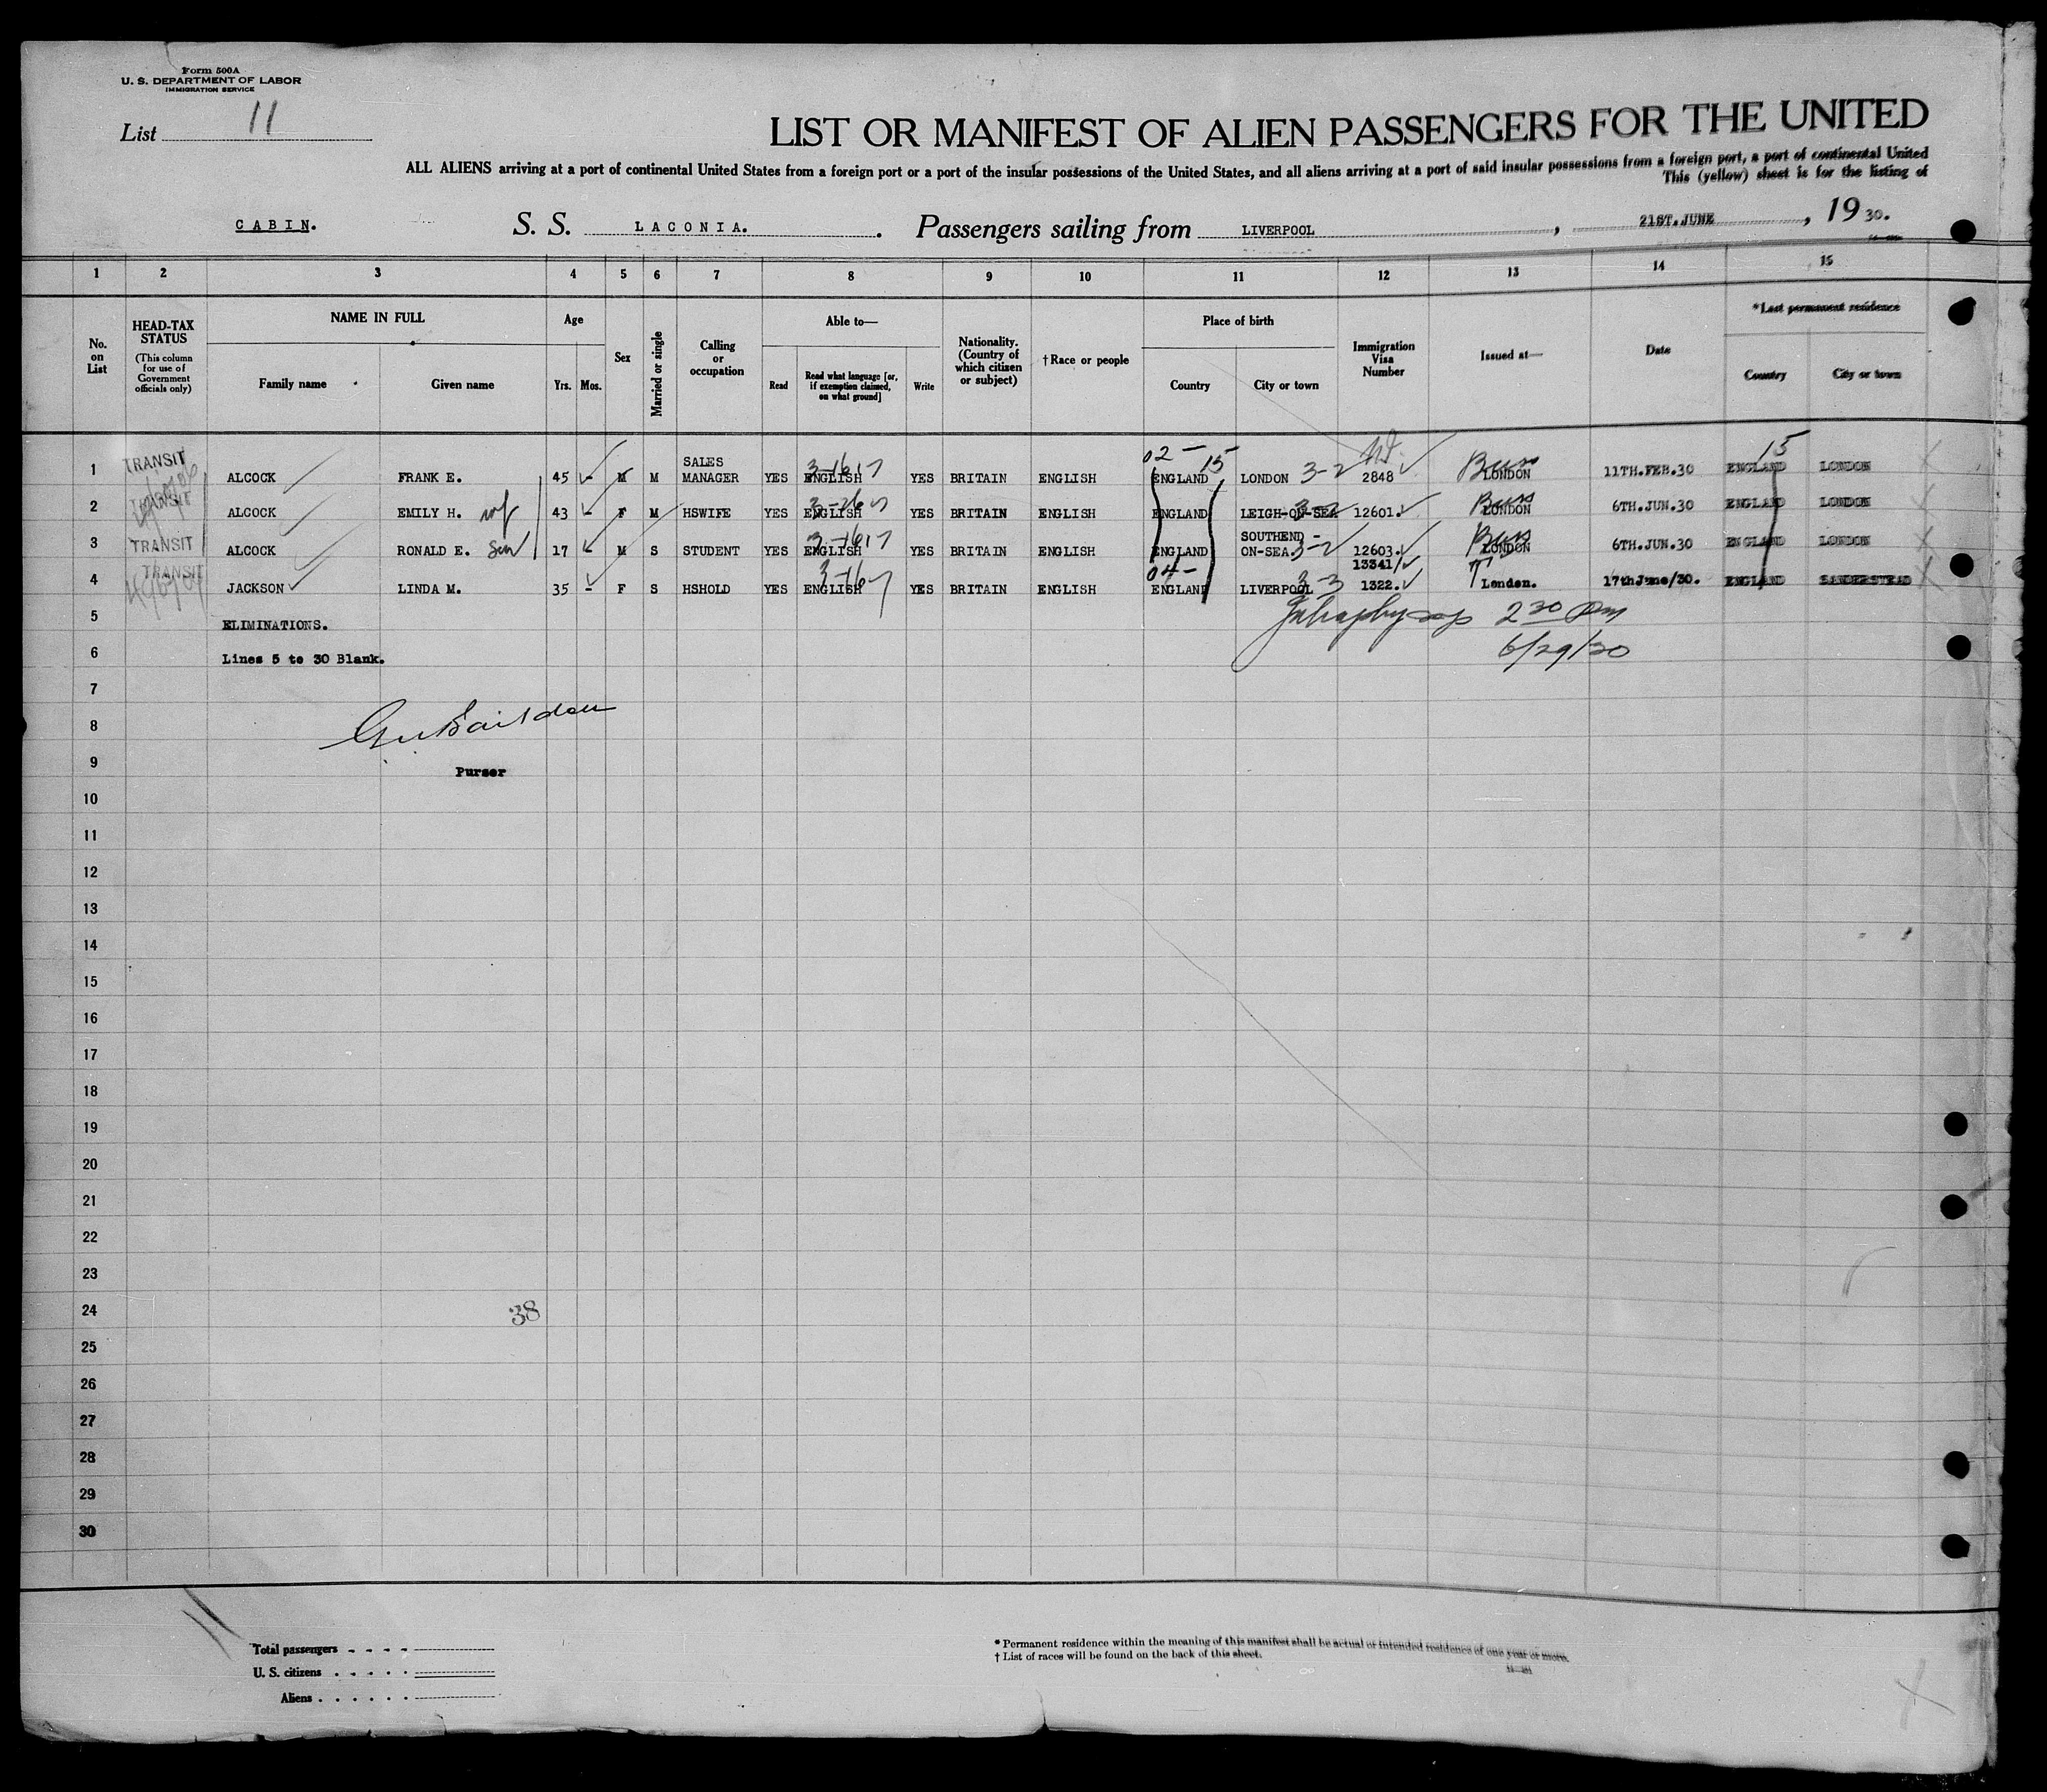 Form 500A
U. S. DEPARTMENT OF LABOR
IMMIGRATION SERVICE
List 11
LIST OR MANIFEST OF ALIEN PASSENGERS FOR THE UNITED
ALL ALIENS arriving at a port of continental United States from a foreign port or a port of the insular possessions of the United States, and all aliens arriving at a port of said insular possessions from a foreign port, a port of continental United
This (yellow) sheet is for the listing of
CABIN. S. S. LACONIA. Passengers sailing from LIVERPOOL, 21ST.JUNE, 1930.
1 2 3 4 5 6 7 8 9 10 11 12 13 14 15
No. on List
HEAD-TAX STATUS (This column for use of Government officials only)
NAME IN FULL
Family name
Given name
Age
Yrs. Mos.
Sex
Married or single
Calling or occupation
Able to—
Read
Read what language [or, if exemption claimed, on what ground]
Write
Nationality. (Country of which citizen or subject)
† Race or people
Place of birth
Country
City or town
Immigration Visa Number
Issued at—
Date
* Last permanent residence
Country
City or town
1 TRANSIT ALCOCK FRANK E. 45 - M M SALES MANAGER YES ENGLISH 3-16 YES BRITAIN ENGLISH 02- ENGLAND 15 LONDON 3-2 2848 LONDON 11TH.FEB.30 ENGLAND 15 LONDON
2 TRANSIT ALCOCK EMILY H. wf 43 - F M HSWIFE YES ENGLISH 3-16 YES BRITAIN ENGLISH ENGLAND LEIGH-ON-SEA 3-2 12601. LONDON 6TH.JUN.30 ENGLAND LONDON
3 TRANSIT ALCOCK RONALD E. Son 17 - M S STUDENT YES ENGLISH 3-16 YES BRITAIN ENGLISH ENGLAND SOUTHEND-ON-SEA. 3-2 12603. LONDON 6TH.JUN.30 ENGLAND LONDON
4 TRANSIT JACKSON LINDA M. 35 - F S HSHOLD YES ENGLISH 3-16 YES BRITAIN ENGLISH 04- ENGLAND LIVERPOOL 3-3 13341/1322. London. 17thJune/30. ENGLAND SANDERSTEAD
5 ELIMINATIONS. 2 30 pm
6 Lines 5 to 30 Blank. 6/29/30
7
8
9 Purser
10
11
12
13
14
15
16
17
18
19
20
21
22
23
24 38
25
26
27
28
29
30
Total passengers
U. S. citizens
Aliens
* Permanent residence within the meaning of this manifest shall be actual or intended residence of one year or more.
† List of races will be found on the back of this sheet.